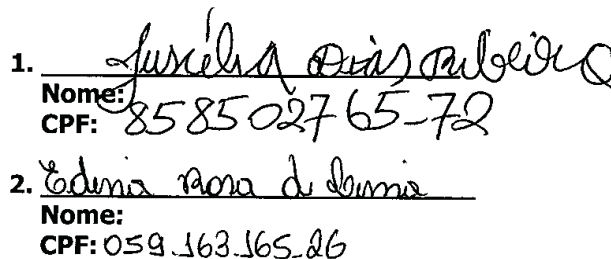 1. Juscélia Dias Ribeiro
Nome:
CPF: 858502765-72
2. Edinia Rosa de
Nome:
CPF: 059.163.165-26